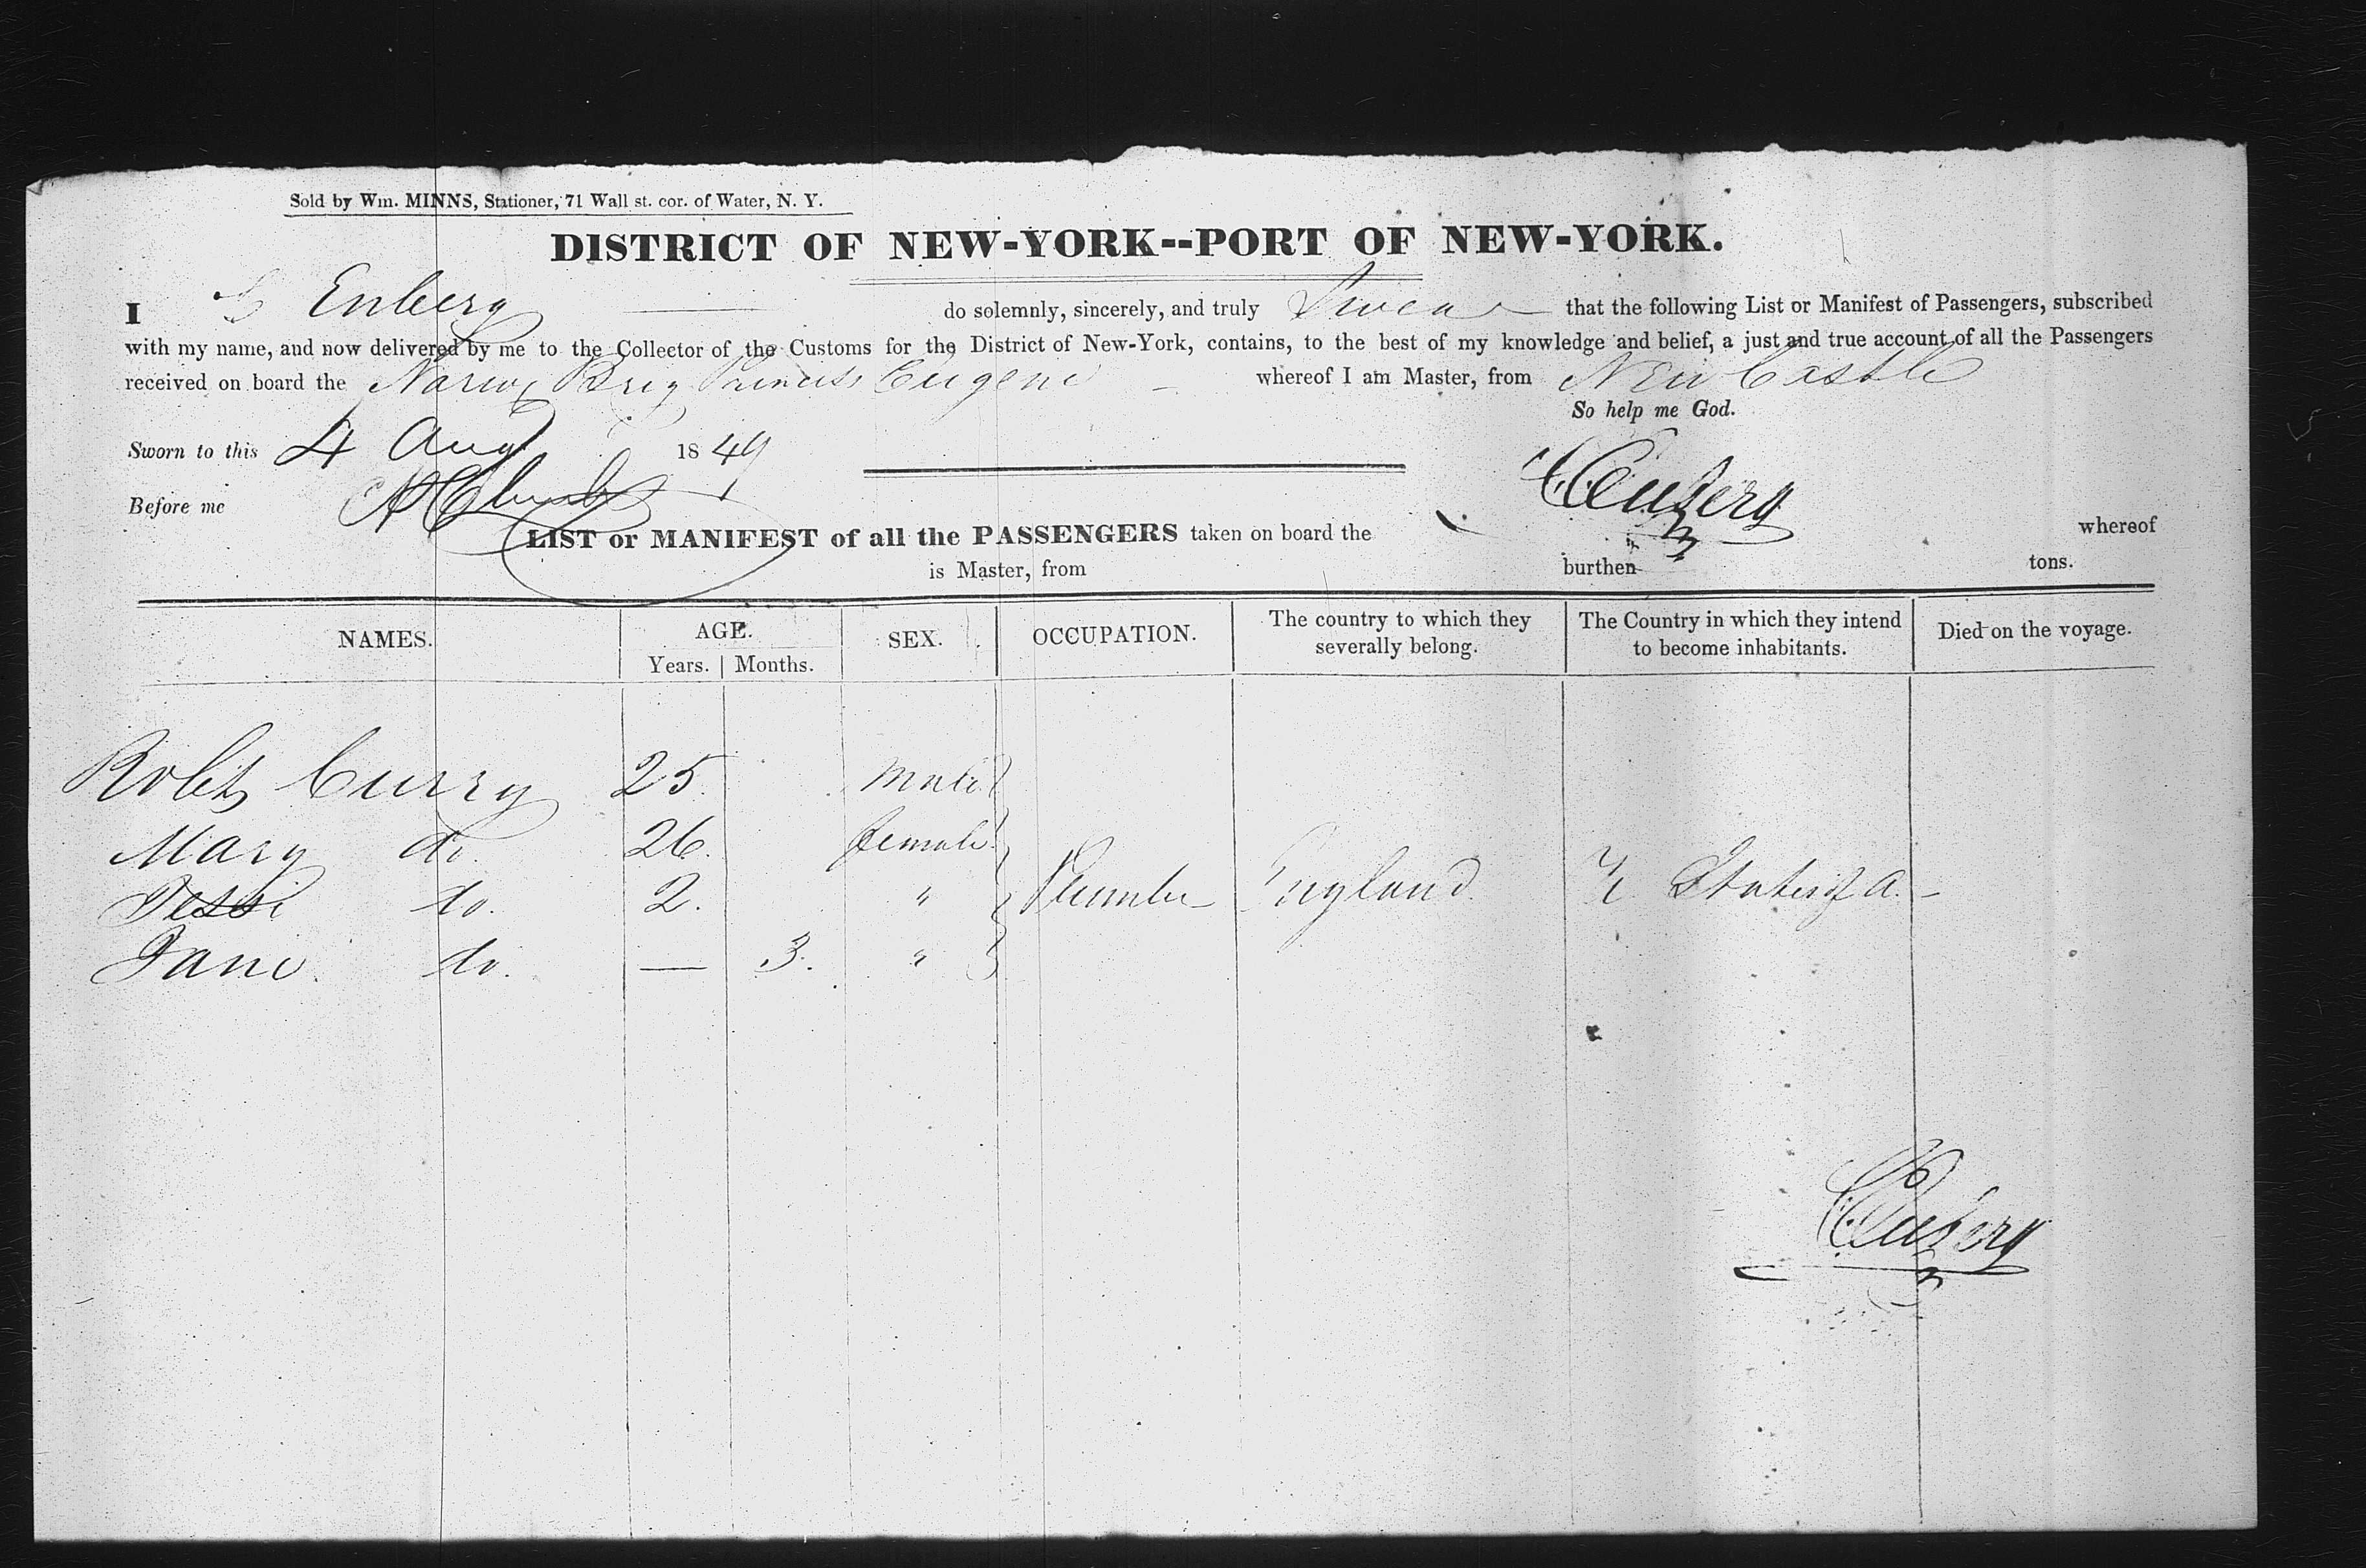 Sold by Wm. MINNS, Stationer, 71 Wall st. cor. of Water, N. Y.
DISTRICT OF NEW-YORK--PORT OF NEW-YORK.
I S Enberg do solemnly, sincerely, and truly Swear that the following List or Manifest of Passengers, subscribed
with my name, and now delivered by me to the Collector of the Customs for the District of New-York, contains, to the best of my knowledge and belief, a just and true account of all the Passengers
received on board the Norwg Brig Princess Eugene whereof I am Master, from New Castle
So help me God.
Sworn to this 4 Aug 1849
Enberg
Before me
LIST or MANIFEST of all the PASSENGERS taken on board the whereof
is Master, from burthen tons.
NAMES. AGE. SEX. OCCUPATION. The country to which they severally belong. The Country in which they intend to become inhabitants. Died on the voyage.
Years. Months.
Robt Curry 25. Male
Mary do. 26. female
Jessi do. 2. " Plumber England States of A.
Jane. do. — 3. "
Enberg